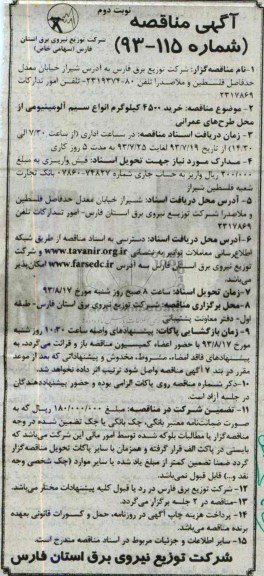 نوبت دوم
آگهی مناقصه
(شماره ۱۱۵-۹۳)
شرکت توزیع نیروی برق استان
فارس (سهامی خاص)
۱-نام مناقصه‌گزار: شرکت توزیع برق فارس به آدرس شیراز خیابان معدل
حدفاصل فلسطین و ملاصدرا تلفن ۸۰-۲۳۱۹۳۷۴ -تلفن امور تدارکات
۲۳۱۷۸۶۹
۲- موضوع مناقصه: خرید ۴۵۰۰ کیلوگرم انواع سیم آلومینیومی از
محل طرح‌های عمرانی
۳- زمان دریافت اسناد مناقصه: در ساعات اداری (از ساعت ۷/۳۰ الی
۱۴/۳۰) از تاریخ ۹۳/۷/۱۹ لغایت ۹۳/۷/۲۵ به مدت ۵ روز کاری
۴- مدارک مورد نیاز جهت تحویل اسناد: فیش واریزی به مبلغ
۲۰۰/۰۰۰ ریال واریز به حساب جاری شماره ۰۷۸۶۰۰۷۲۸۲۷ بانک تجارت
شعبه فلسطین شیراز
۵- آدرس محل دریافت اسناد: شیراز خیابان معدل حدفاصل فلسطین
و ملاصدرا شرکت توزیع نیروی برق استان فارس- امور تدارکات تلفن
۲۳۱۷۸۶۹
۶-آدرس محل دریافت اسناد: دسترسی به اسناد مناقصه از طریق شبکه
اطلاع‌رسانی معاملات توانیر به نشانی www.tavanir.org.ir و شرکت
توزیع نیروی برق استان فارس به آدرس www.farsedc.ir امکان‌پذیر
می‌باشد.
۷-زمان تحویل اسناد: ساعت ۸ صبح روز شنبه مورخ ۹۳/۸/۱۷
۸-محل برگزاری مناقصه: شرکت توزیع نیروی برق استان فارس- طبقه
اول- دفتر معاونت پشتیبانی
۹- زمان بازگشایی پاکات: پیشنهادهای واصله ساعت ۱۰/۳۰ روز شنبه
مورخ ۹۳/۸/۱۷ با حضور اعضاء کمیسیون مناقصه باز و قرائت می‌گردد، به
پیشنهادهای فاقد امضاء، مشروط، مخدوش و پیشنهاداتی که بعد از موعد
مقرر در بند ۷ آگهی مناقصه واصل شود ترتیب اثر داده نخواهد شد.
۱۰-ذکر شماره مناقصه روی پاکات الزامی بوده و حضور پیشنهاددهندگان
در جلسه آزاد است.
۱۱- تضمین شرکت در مناقصه: مبلغ ۱۸۰/۰۰۰/۰۰۰ ریال که به
صورت ضمانت‌نامه معتبر بانکی، چک بانکی یا چک تضمین شده در وجه
مناقصه‌گزار یا مطالبات بلوکه شده توسط امور مالی این شرکت می‌باشد که
بایستی در پاکت الف قرار گرفته و همزمان با سایر پاکات تحویل مناقصه‌گزار
گردد ضمنا تضمین کمتر از مبلغ یاد شده یا سایر موارد (چک شخصی وجه
نقد و...) قابل قبول نمی‌باشد.
۱۲- شرکت توزیع برق فارس در رد یا قبول کلیه پیشنهادات مختار می‌باشد.
۱۳-مناقصه در ۲ جلسه برگزار می‌گردد.
۱۴- پرداخت هزینه چاپ آگهی در روزنامه، حمل و کسورات قانونی بعهده
برنده مناقصه می‌باشد.
۱۵- سایر اطلاعات و جزئیات مربوط در اسناد مناقصه مندرج است.
شرکت توزیع نیروی برق استان فارس